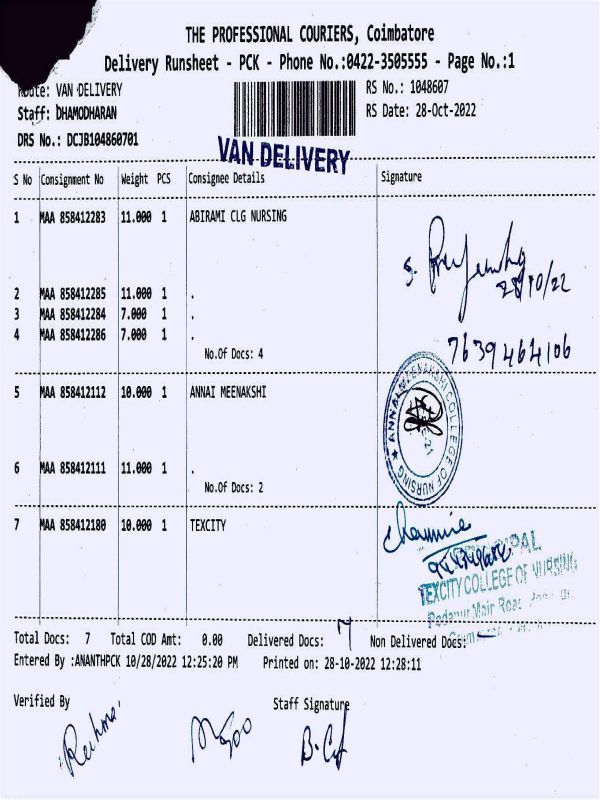 THE PROFESSIONAL COURIERS, Coimbatore
Delivery Runsheet - PCK - Phone No.:0422-3505555 - Page No.:1
Route: VAN DELIVERY RS No.: 1048607
Staff: DHAMODHARAN RS Date: 28-Oct-2022
DRS No.: DCJB104860701
VAN DELIVERY
S No Consignment No Weight PCS Consignee Details Signature
1 MAA 858412283 11.000 1 ABIRAMI CLG NURSING
28/10/22
2 MAA 858412285 11.000 1 .
3 MAA 858412284 7.000 1 .
4 MAA 858412286 7.000 1 .
7639464106
No.Of Docs: 4
5 MAA 858412112 10.000 1 ANNAI MEENAKSHI
ANNAI MEENAKSHI COLLEGE OF NURSING
6 MAA 858412111 11.000 1 .
No.Of Docs: 2
7 MAA 858412180 10.000 1 TEXCITY
TEXCITY COLLEGE OF NURSING
Total Docs: 7 Total COD Amt: 0.00 Delivered Docs: 7 Non Delivered Docs: -
Entered By :ANANTHPCK 10/28/2022 12:25:20 PM Printed on: 28-10-2022 12:28:11
Verified By Staff Signature